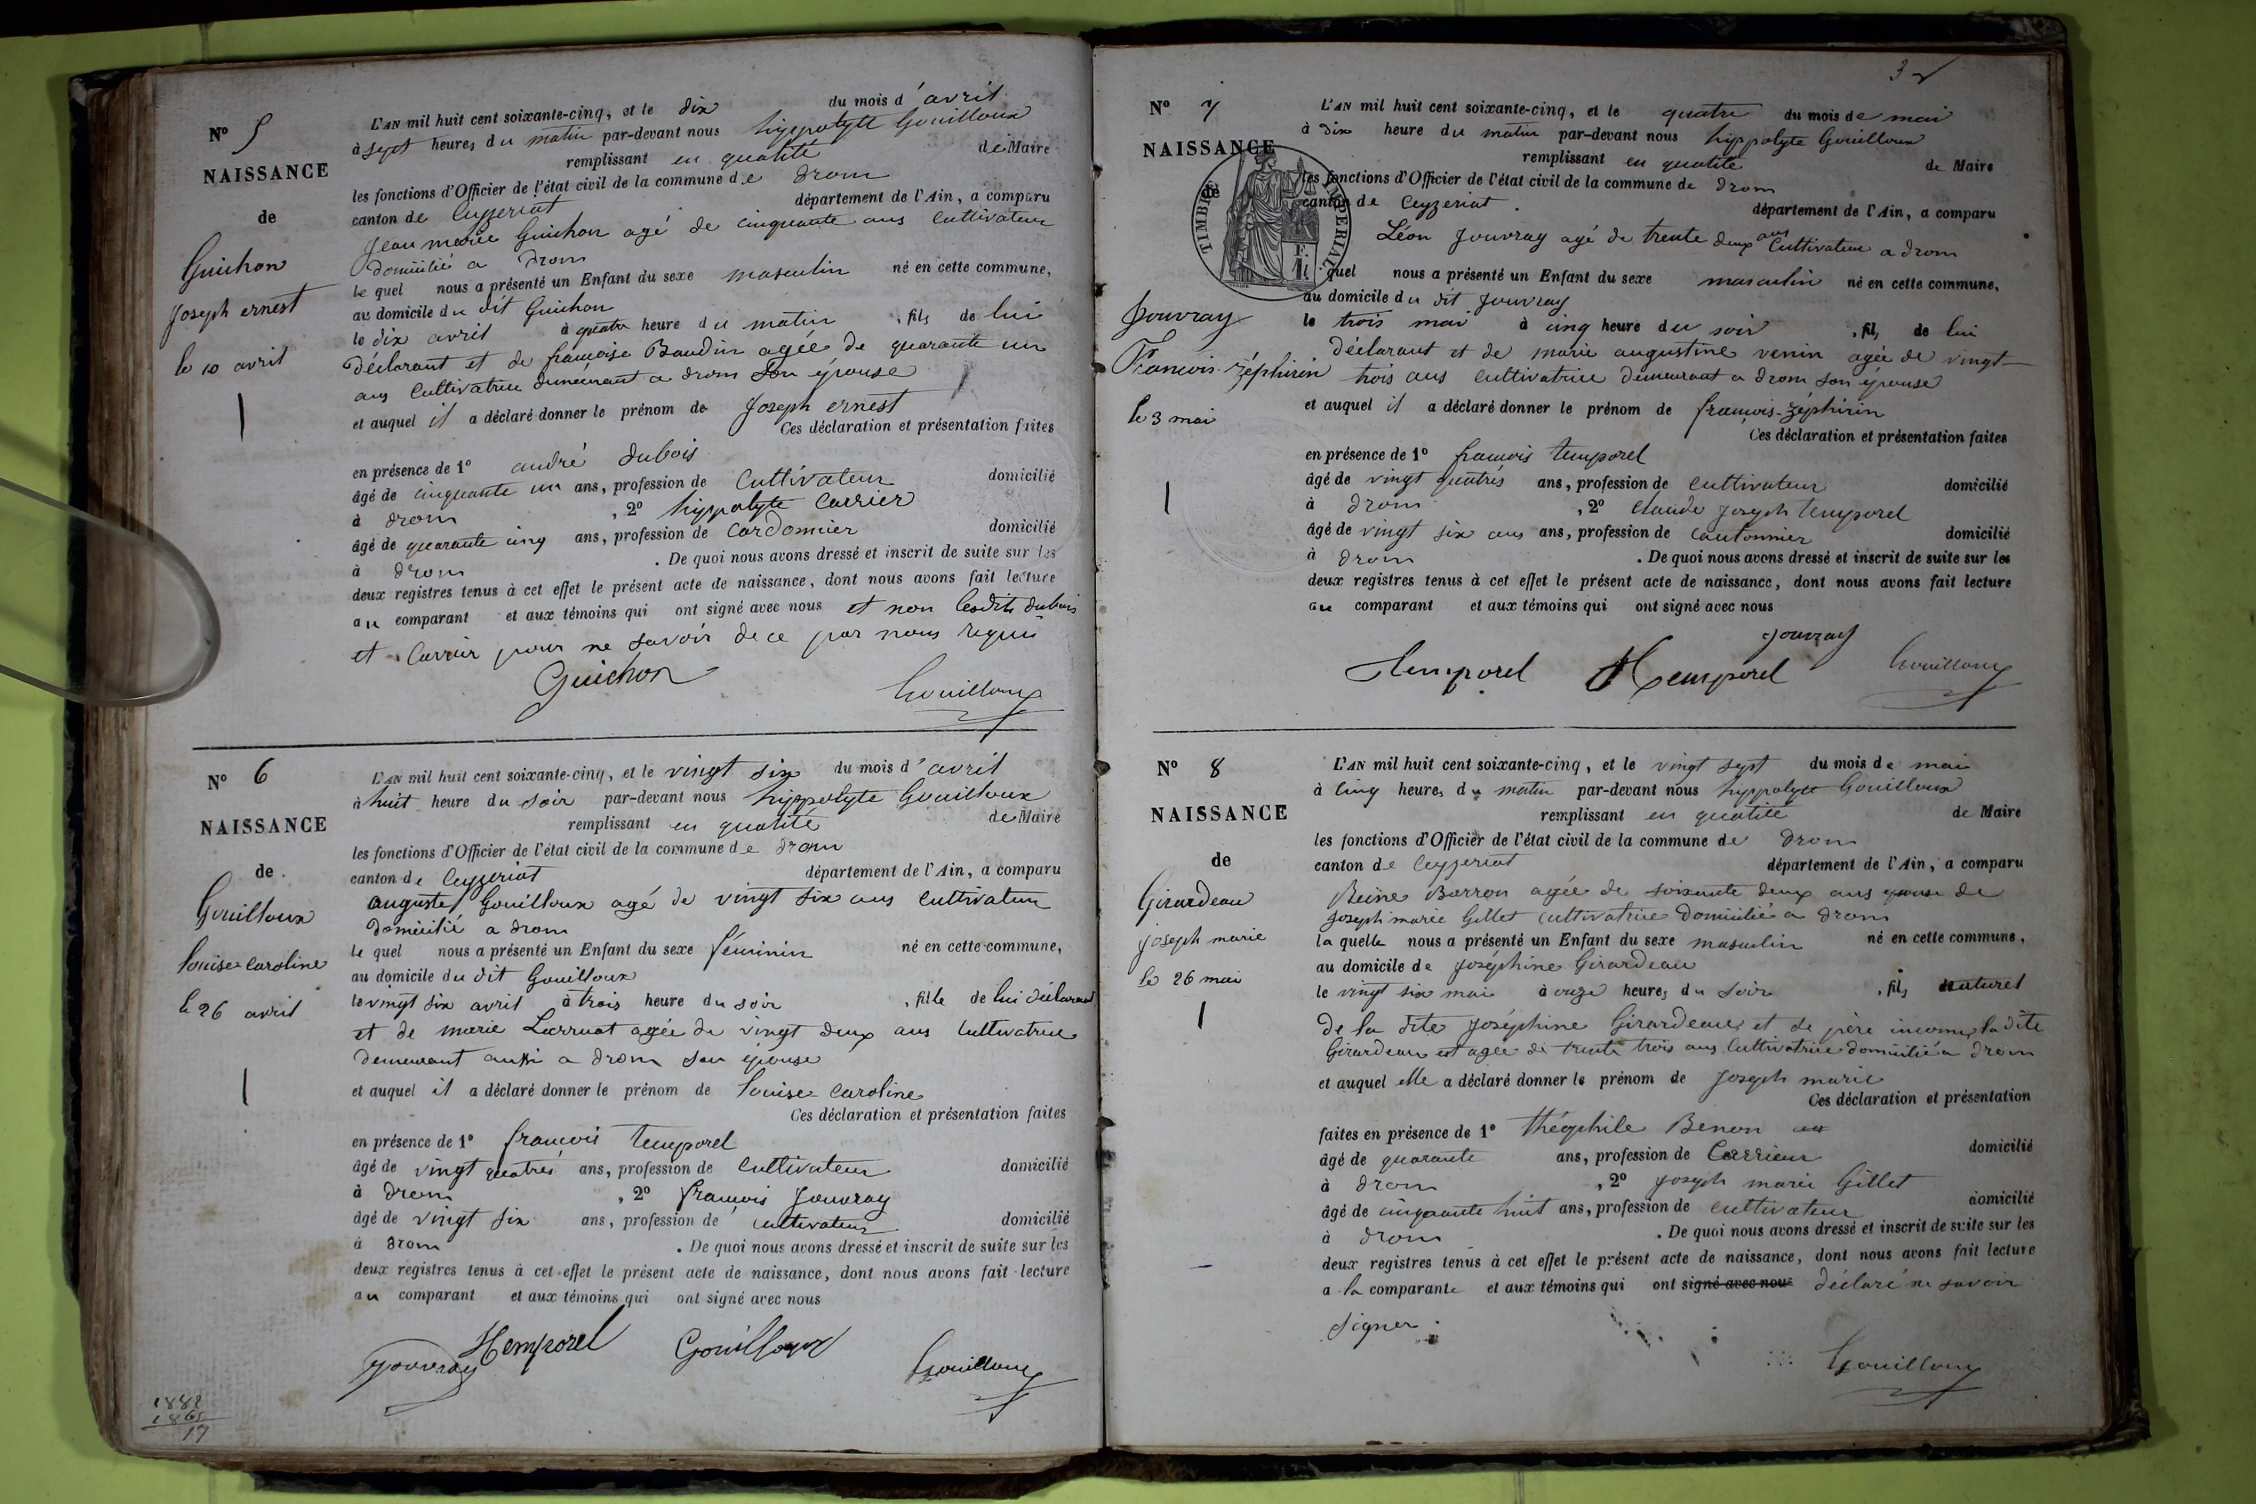 N° 5
NAISSANCE
de
Guichon
Joseph ernest
le 10 avril
L'AN mil huit cent soixante-cinq, et le dix du mois d'avril
à sept heures du matin par-devant nous hyppolyte Gouilloux
remplissant en qualité de Maire
les fonctions d'Officier de l'état civil de la commune de drom
canton de Ceyzeriat département de l'Ain, a comparu
Jean marie Guichon agé de cinquante ans cultivateur
domicilié a drom
le quel nous a présenté un Enfant du sexe masculin né en cette commune,
au domicile du dit Guichon
le dix avril à quatre heure du matin, fils de lui
déclarant et de françoise Baudin agée de quarante un
ans cultivatrice demeurant a drom Son épouse
et auquel il a déclaré donner le prénom de Joseph ernest
Ces déclaration et présentation faites
en présence de 1° andré dubois
âgé de cinquante un ans, profession de cultivateur domicilié
à drom, 2° hyppolyte Carrier
âgé de quarante cinq ans, profession de Cordonnier domicilié
à drom. De quoi nous avons dressé et inscrit de suite sur les
deux registres tenus à cet effet le présent acte de naissance, dont nous avons fait lecture
au comparant et aux témoins qui ont signé avec nous et non lesdits dubois
et Carrier pour ne savoir de ce par nous requis
Guichon Gouilloux
N° 6
NAISSANCE
de
Gouilloux
louise caroline
le 26 avril
L'AN mil huit cent soixante-cinq, et le vingt six du mois d'avril
à huit heure du soir par-devant nous hyppolyte Gouilloux
remplissant en qualité de Maire
les fonctions d'Officier de l'état civil de la commune de drom
canton de Ceyzeriat département de l'Ain, a comparu
auguste Gouilloux agé de vingt six ans cultivateur
domicilié a drom
le quel nous a présenté un Enfant du sexe féminin né en cette commune,
au domicile du dit Gouilloux
le vingt six avril à trois heure du soir, fille de lui déclarant
et de marie Larruat agée de vingt deux ans cultivatrice
demeurant aussi a drom son épouse
et auquel il a déclaré donner le prénom de louise caroline
Ces déclaration et présentation faites
en présence de 1° françois temporel
âgé de vingt quatres ans, profession de cultivateur domicilié
à drom, 2° françois Jouvray
âgé de vingt six ans, profession de cultivateur domicilié
à drom. De quoi nous avons dressé et inscrit de suite sur les
deux registres tenus à cet effet le présent acte de naissance, dont nous avons fait lecture
au comparant et aux témoins qui ont signé avec nous
Jouvray Temporel Gouilloux Gouilloux
1882
1865
17
3
N° 7
NAISSANCE
de
TIMBRE IMPERIAL
Jouvray
François-zéphirin
le 3 mai
L'AN mil huit cent soixante-cinq, et le quatre du mois de mai
à dix heure du matin par-devant nous hyppolyte Gouilloux
remplissant en qualité de Maire
les fonctions d'Officier de l'état civil de la commune de drom
canton de Ceyzeriat. département de l'Ain, a comparu
Léon Jouvray agé de trente deux ans Cultivateur a drom
quel nous a présenté un Enfant du sexe masculin né en cette commune,
au domicile du dit Jouvray
le trois mai à cinq heure du soir, fils de lui
déclarant et de marie augustine venin agée de vingt
trois ans cultivatrice demeurant a drom son épouse
et auquel il a déclaré donner le prénom de françois-zéphirin
Ces déclaration et présentation faites
en présence de 1° françois temporel
âgé de vingt quatres ans, profession de cultivateur domicilié
à drom, 2° claude joseph temporel
âgé de vingt six ans ans, profession de cantonnier domicilié
à drom. De quoi nous avons dressé et inscrit de suite sur les
deux registres tenus à cet effet le présent acte de naissance, dont nous avons fait lecture
au comparant et aux témoins qui ont signé avec nous
Jouvray
Temporel Temporel Gouilloux
N° 8
NAISSANCE
de
Girardeau
joseph marie
le 26 mai
L'AN mil huit cent soixante-cinq, et le vingt sept du mois de mai
à cinq heures du matin par-devant nous hyppolyte Gouilloux
remplissant en qualité de Maire
les fonctions d'Officier de l'état civil de la commune de drom
canton de Ceyzeriat département de l'Ain, a comparu
Reine Barron agée de soixante deux ans epouse de
Joseph marie Gillet cultivatrice domicilié a drom
la quelle nous a présenté un Enfant du sexe masculin né en cette commune,
au domicile de Joséphine Girardeau
le vingt six mai à onze heures du soir, fils naturel
de la dite Joséphine Girardeau et de père inconnu, la dite
Girardeau est agée de trente trois ans Cultivatrice domicilié a drom
et auquel elle a déclaré donner le prénom de Joseph marie
Ces déclaration et présentation
faites en présence de 1° théophile Benon
âgé de quarante ans, profession de Carrieur domicilié
à drom, 2° joseph marie Gillet
âgé de cinquante huit ans, profession de cultivateur domicilié
à drom. De quoi nous avons dressé et inscrit de suite sur les
deux registres tenus à cet effet le présent acte de naissance, dont nous avons fait lecture
a la comparante et aux témoins qui ont signé avec nous déclaré ne savoir
signer.
Gouilloux